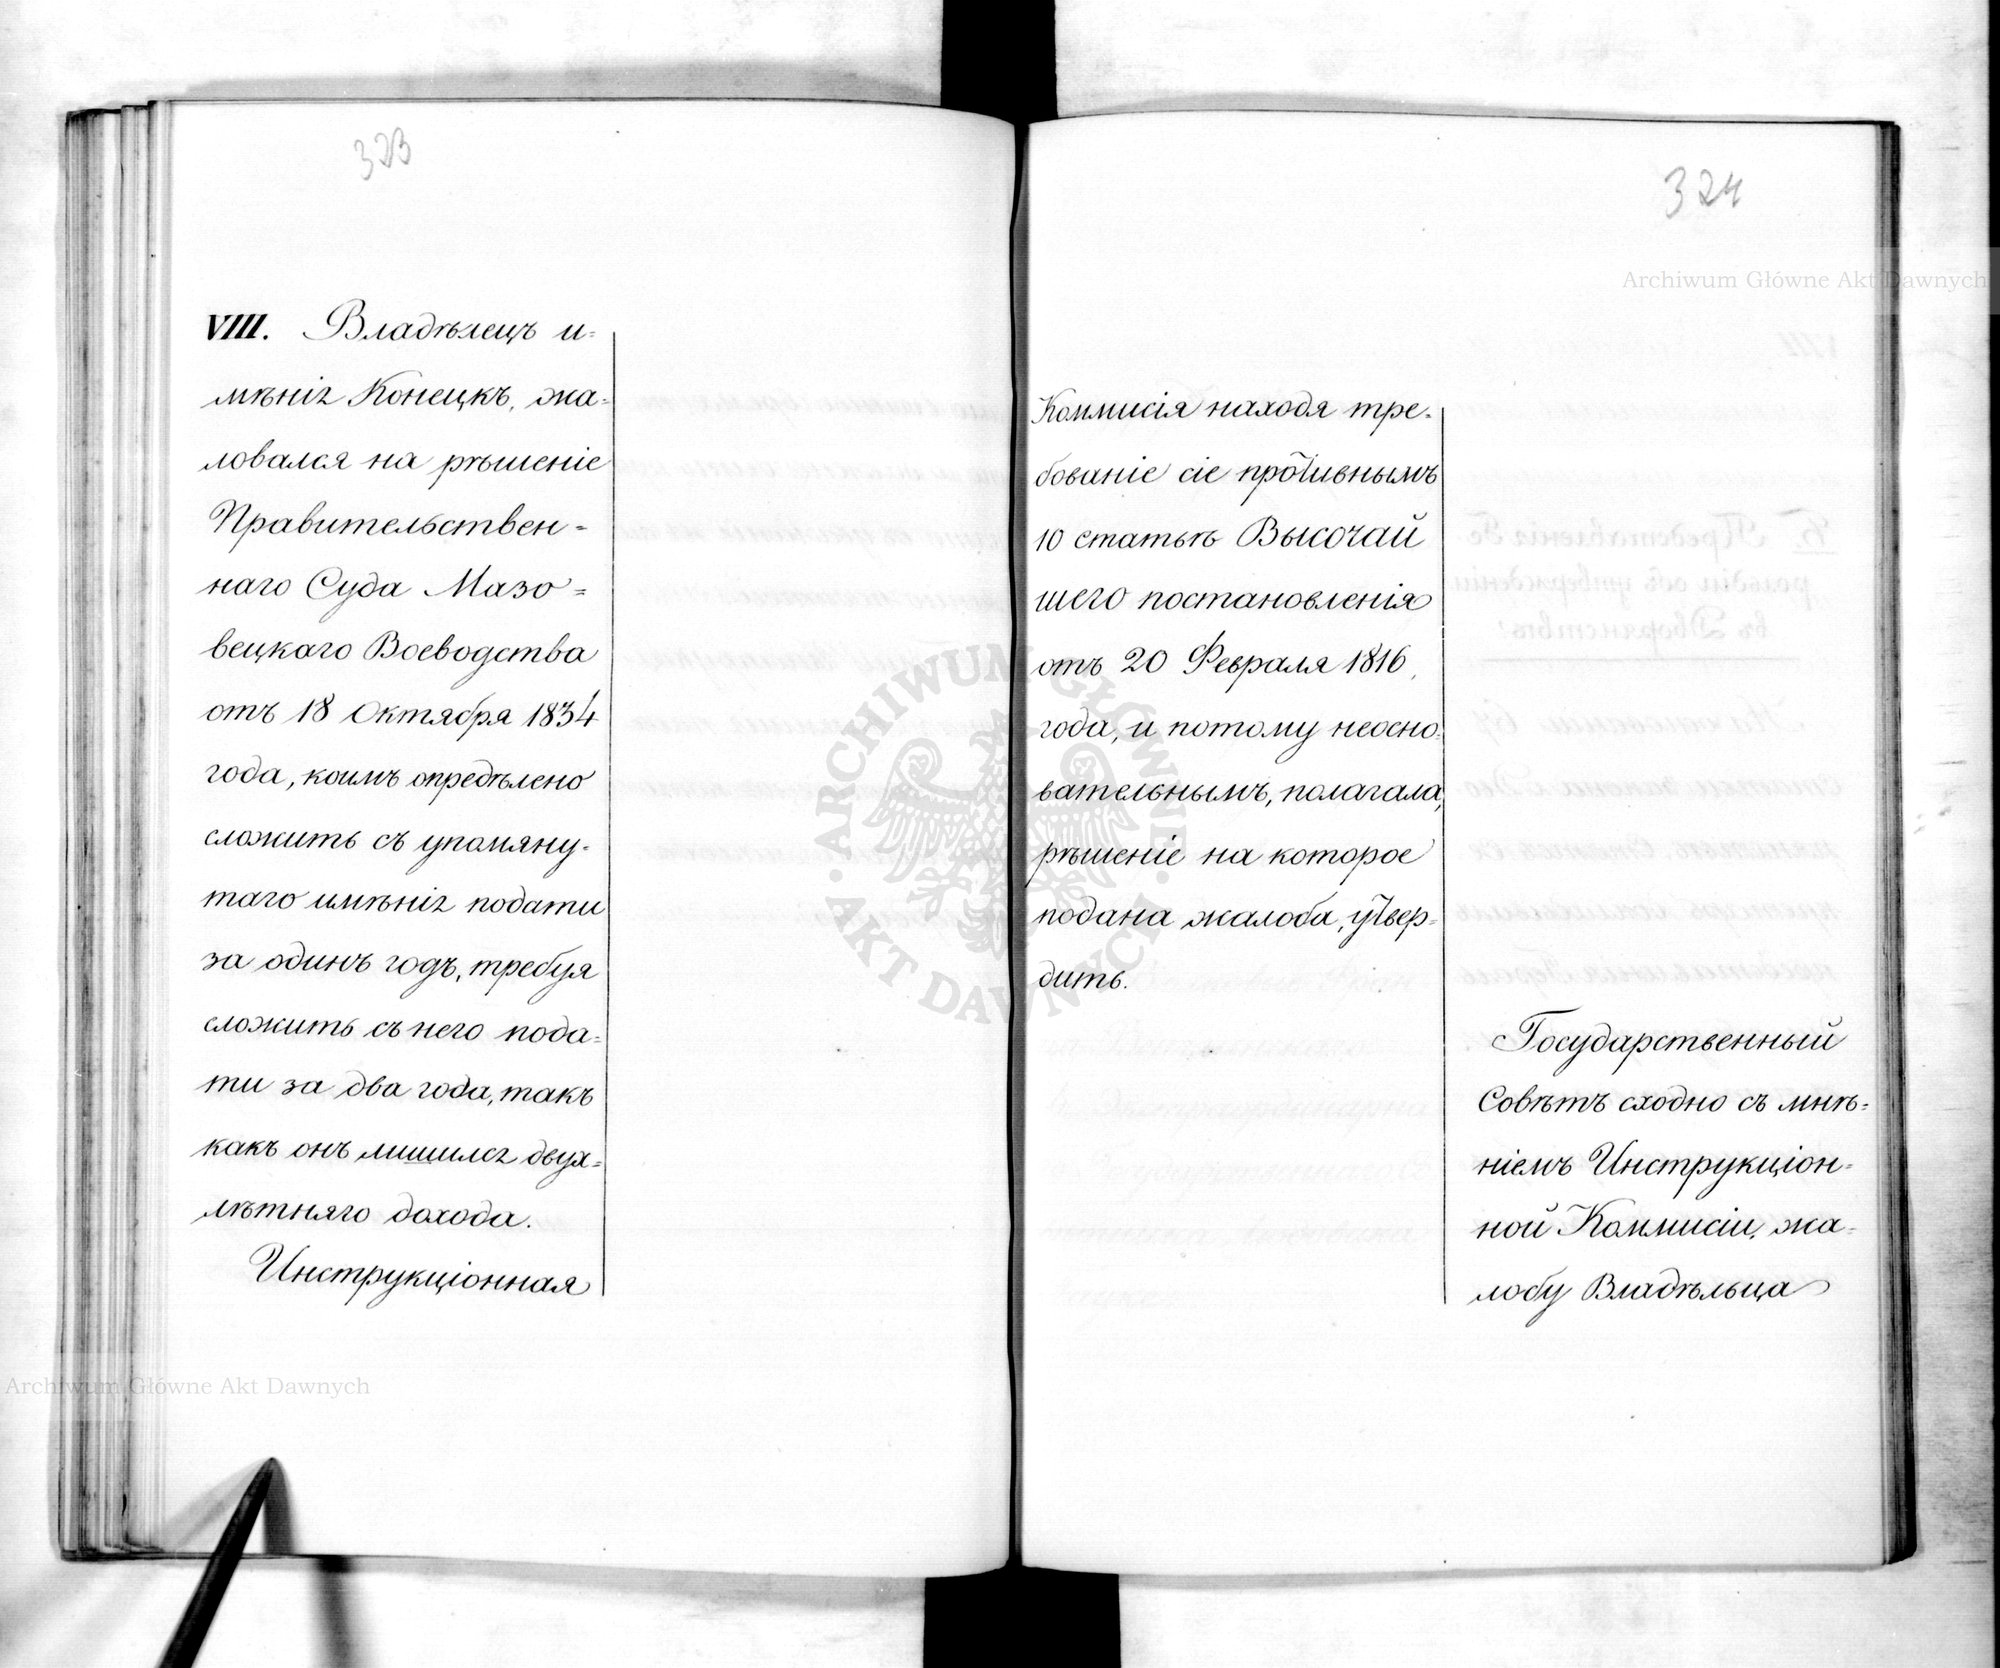 323
VIII. Владѣлецъ и=
мѣнія Конецкъ, жа=
ловался на рѣшеніе
Правительствен=
наго Суда Мазо=
вецкаго Воеводства
отъ 18 Октября 1834
года, коимъ опредѣлено
сложить съ упомяну=
таго имѣнія подати
за одинъ годъ, требуя
сложить съ него пода=
ти за два года, такъ
какъ онъ лишился двух=
лѣтняго дохода.
Инструкціонная
324
Коммисія находя тре=
бованіе сіе противнымъ
10 статьѣ Высочай
шего постановленія
отъ 20 Февраля 1816
года, и потому неосно=
вательнымъ, полагала,
рѣшеніе на которое
подана жалоба, утвер=
дить.
Государственный
Совѣтъ сходно съ мнѣ=
ніемъ Инструкціон=
ной Коммисіи, жа=
лобу Владѣльца
Archiwum Główne Akt Dawnych
Archiwum Główne Akt Dawnych
ARCHIWUM GŁÓWNE AKT DAWNYCH